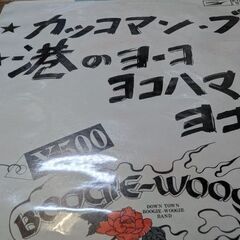 ★カッコマン・ブ
★港のヨーコ
ヨコハマ
ヨコ
¥500
BOOGIE-WOOG
DOWN TOWN
BOOGIE-WOOGIE
BAND